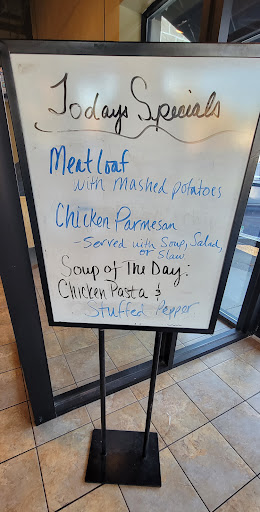 Todays Specials
Meatloaf
with mashed potatoes
Chicken Parmesan
- Served with Soup, Salad,
or Slaw
Soup of The Day:
Chicken Pasta &
Stuffed Pepper